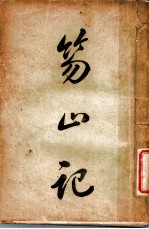 笏山记